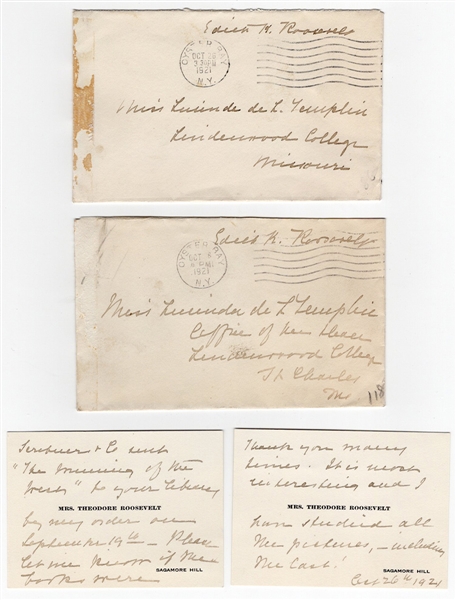 Edith K. Roosevelt
OYSTER BAY
OCT 26
3 30 PM
1921
N.Y.
Miss Lucinda de L. Templin
Lindenwood College
Missouri
Edith K. Roosevelt
OYSTER BAY
OCT 6
PM
1921
N.Y.
Miss Lucinda de L Templin
Office of the Dean
Lindenwood College
St Charles
Mo
118
Scribner & Co sent
"The Winning of the
West" to your library
MRS. THEODORE ROOSEVELT
by my order on
September 19th - Please
let me know if the
books were
SAGAMORE HILL
Thank you many
times. It is most
interesting and I
MRS. THEODORE ROOSEVELT
have studied all
the pictures, - including
the last!
SAGAMORE HILL
Oct 26th 1921